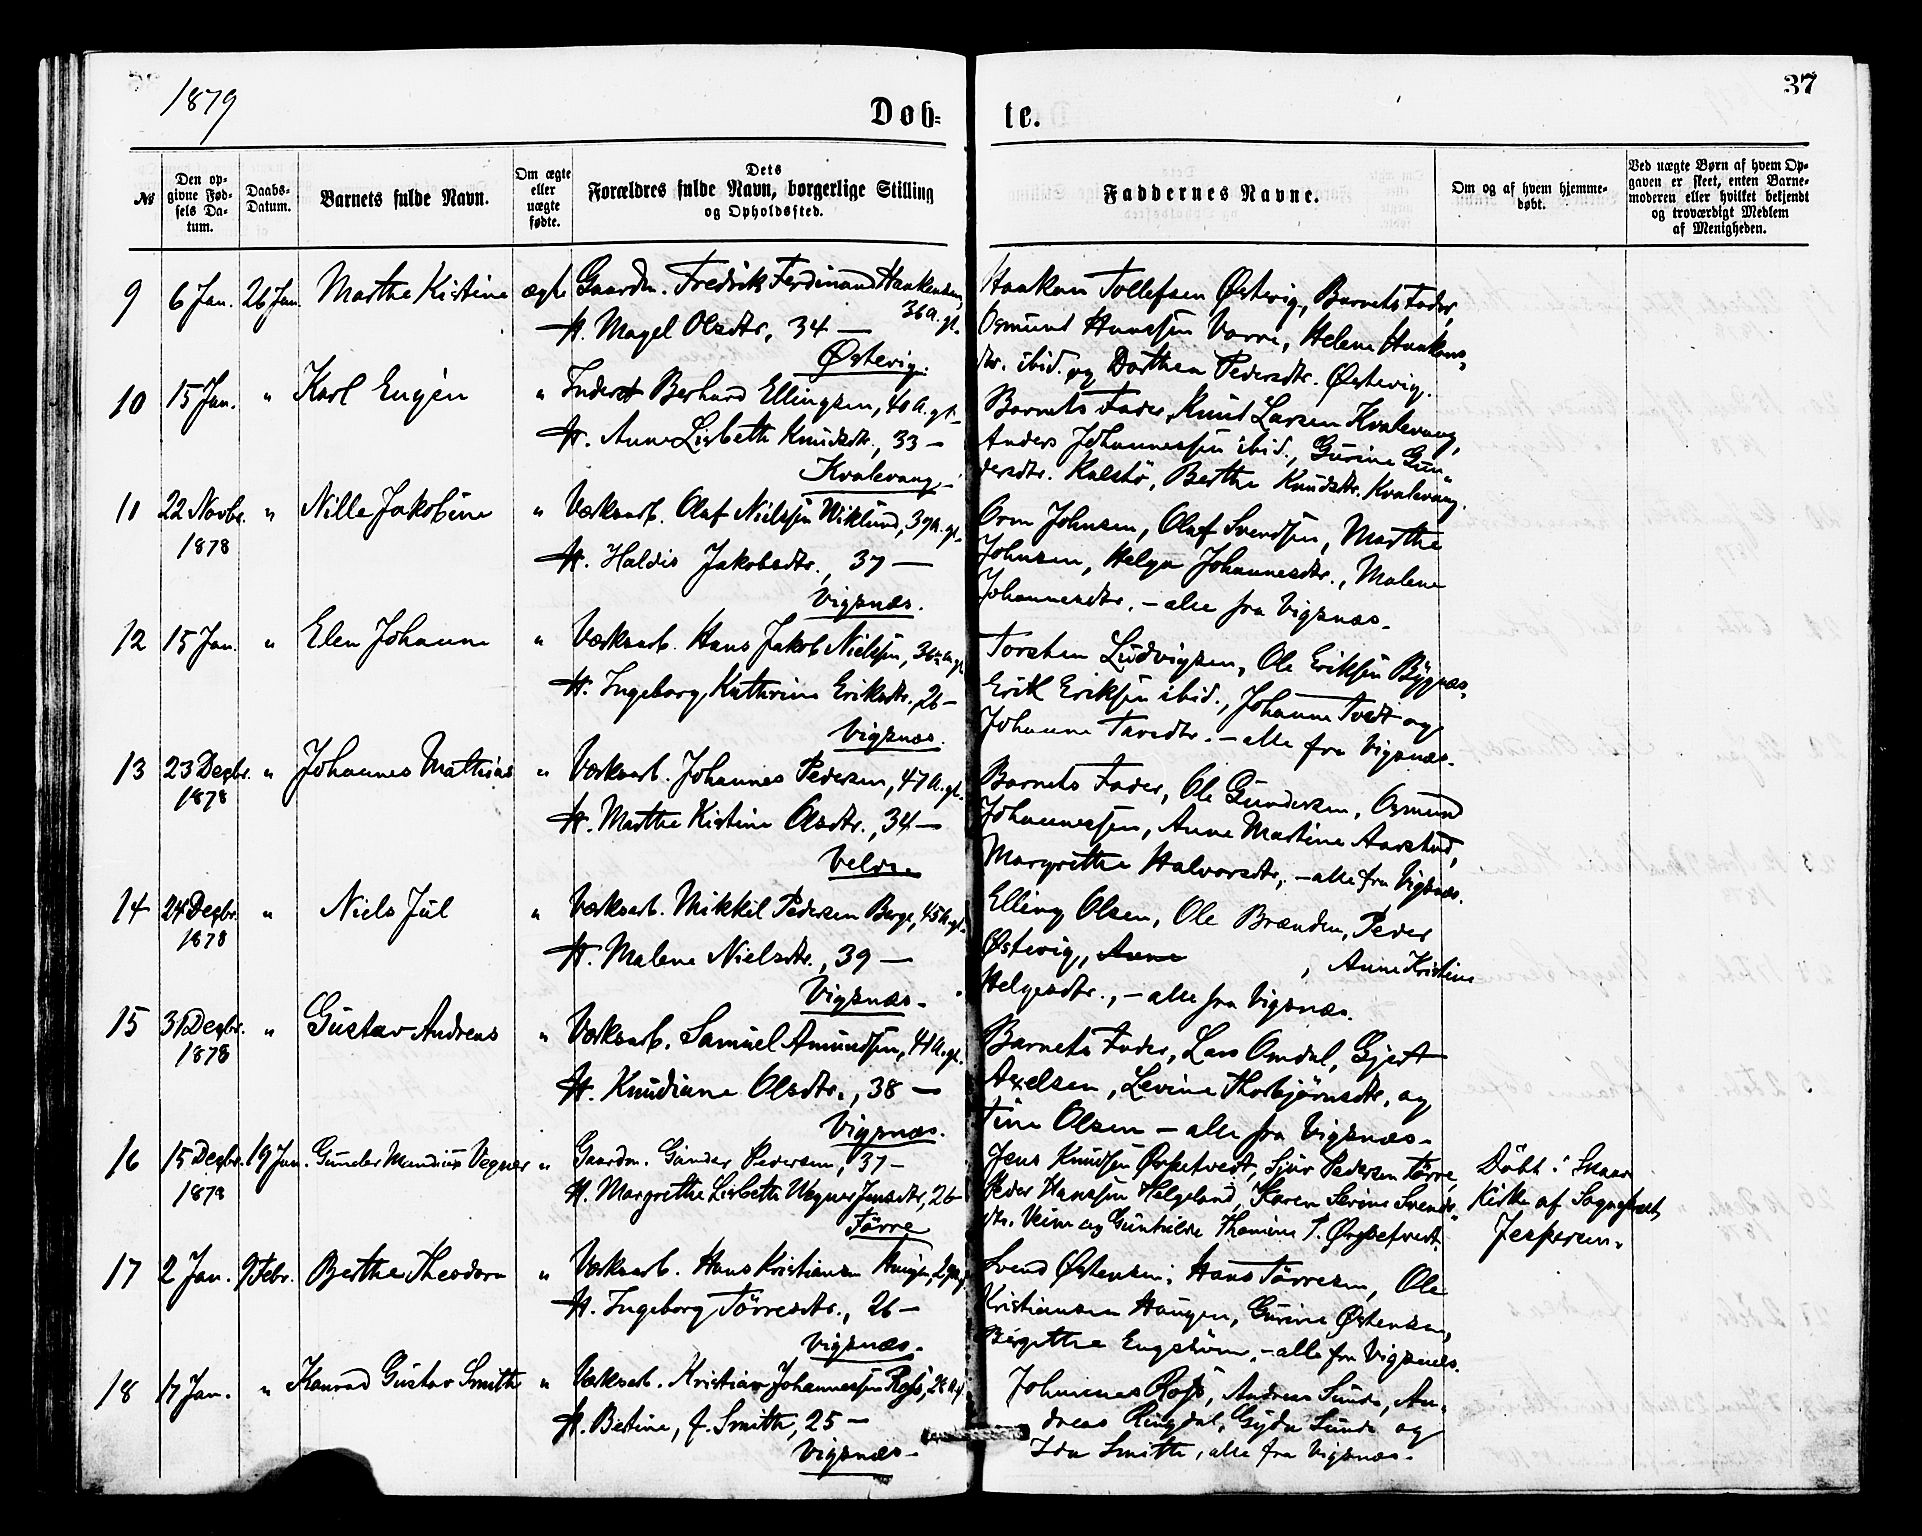 1879
Døb=
te.
37
№
Den op-
givne Fød-
sels Da-
tum.
Daabs-
Datum.
Barnets fulde Navn.
Om ægte
eller
uægte
fødte.
Dets
Forældres fulde Navn, borgerlige Stilling
og Opholdssted.
Faddernes Navne.
Om og af hvem hjemme-
døbt.
Ved uægte Børn af hvem Op-
gaven er skeet, enten Barne-
moderen eller hvilket bekjendt
og troværdigt Medlem
af Menigheden.
9 6 Jan. 26 Jan. Marthe Kistine ægte Gaardm. Fredrik Ferdinand Haakensen,
36 A. gl.
H. Magel Olsdtr., 34 —
Østevig.
Haakon Tollefsen Østevig, Barnets Fader,
Osmund Hanssen Vorre, Helene Haakons-
dtr. ibid. og Dorthea Pedersdtr. Østevig.
10 15 Jan. " Karl Eugén " Inderst Berhard Ellingsen, 40 A. gl.
H. Anne Lisbeth Knudsdtr., 33 —
Kvalevaag.
Barnets Fader, Knud Larsen Kvalevaag,
Anders Johannessen ibid., Gurine Gun-
dersdtr. Kalstø, Berthe Knudsdtr. Kvalevaag.
11 22 Novbr. " Nille Jakobine " Værksarb. Olaf Nielssen Wiklund, 39 A. gl.
1878
H. Haldis Jakobsdtr., 37 —
Vigsnæs.
Orm Johnsen, Olaf Svendsen, Marthe
Johnsen, Helga Johannesdtr., Malene
Johannesdtr. — alle fra Vigsnæs.
12 15 Jan. " Elen Johanne " Værksarb. Hans Jakob Nielsen, 36 A. gl.
H. Ingeborg Kathrine Eriksdtr., 26 —
Vigsnæs.
Torsten Ludvigsen, Ole Eriksen Bygnæs,
Erik Eriksen ibid., Johanne Tvedt og
Johanne Taredtr. — alle fra Vigsnæs.
13 23 Decbr. " Johannes Mathias " Værksarb. Johannes Pedersen, 47 A. gl.
1878
H. Marthe Kistine Olsdtr., 34 —
Velde
Barnets Fader, Ole Gundersen, Osmund
Johannessen, Anne Martine Aarstad,
Margrethe Halvorsdtr, — alle fra Vigsnæs.
14 24 Decbr. " Niels Jul " Værksarb. Mikkil Pedersen Berge, 45 A. gl.
1878
H. Malene Nielsdtr., 39 —
Vigsnæs.
Elling Olsen, Ole Brænden, Peder
Østevig, Anne , Anne Kristine
Helgesdtr., — alle fra Vigsnæs.
15 31 Decbr. " Gustav Andreas " Værksarb. Samuel Amundsen, 41 A. gl.
1878
H. Knudiane Olsdtr., 38 —
Vigsnæs.
Barnets Fader, Lars Omdal, Gjert
Axelsen, Levine Thorbjørnsdtr, og
Tine Olsen — alle fra Vigsnæs.
16 15 Decbr. 19 Jan. Gunder Mandius Vegner " Gaardm. Gunder Pedersen, 37 —
1878
H. Margrethe Lisbeth Wegner Jensdtr, 26 —
Førre
Jens Knudsen Ørpetvedt, Sjur Pedersen Førre,
Peder Hanssen Helgeland, Karen Serine Svends-
dtr. Veim og Gunhilde Thomine P. Ørpetvedt.
Døbt i Skaar
Kirke af Sognepræst
Jespersen.
17 2 Jan. 9 Febr. Berthe Theodora " Værksarb. Hans Kristiansen Haugen,
H. Ingeborg Tørresdtr., 26 —
Vigsnæs.
Svend Østensen, Hans Tørresen, Ole
Kristiansen Haugen, Gurine Østensen,
Birgitte Engstrøm, — alle fra Vigsnæs.
18 17 Jan. " Konrad Gustav Smith " Værksarb. Kristian Johannessen Ross, 28 A. gl
H. Betine, f. Smith, 25 —
Vigsnæs.
Johannes Ross, Andreas Sunde, An-
dreas Ringdal, Gyda Sunde og
Ida Smith, alle fra Vigsnæs.